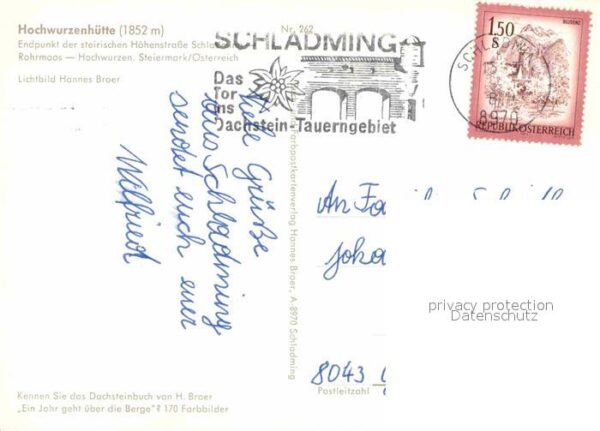 Hochwurzenhütte (1852 m)
Endpunkt der steirischen Höhenstraße Schladming
Rohrmoos — Hochwurzen. Steiermark/Österreich
Lichtbild Hannes Broer
Nr. 262
SCHLADMING
Das
Tor
ins
Dachstein-Tauerngebiet
1.50
S
BLUDENZ
REPUBLIK ÖSTERREICH
8970
Viele Grüße
aus Schladming
sendet euch euer
Wilfried
Farbpostkartenverlag Hannes Broer, A-8970 Schladming
An Fa
Joka
8043
Postleitzahl
privacy protection
Datenschutz
Kennen Sie das Dachsteinbuch von H. Broer
„Ein Jahr geht über die Berge"? 170 Farbbilder